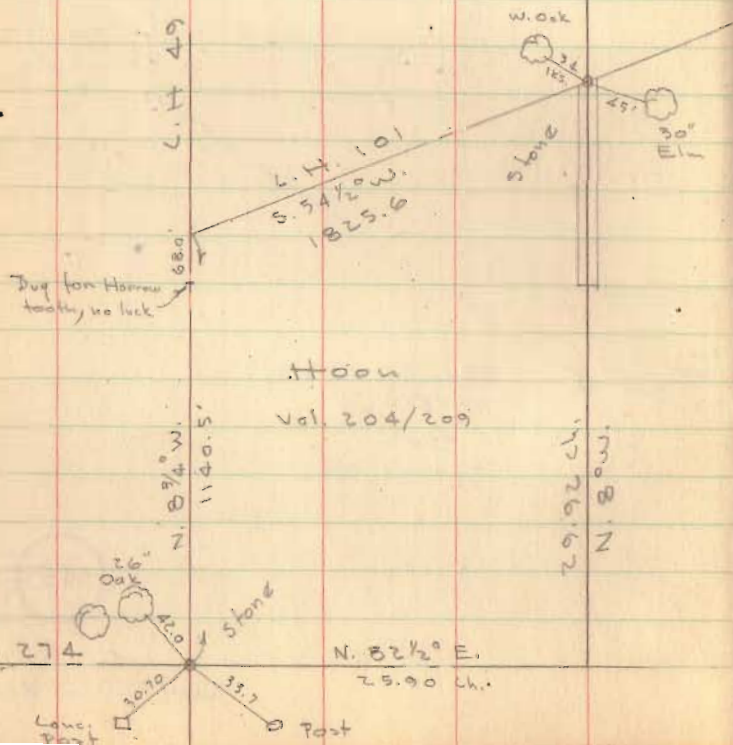 W. Oak
34
lks.
45'
30"
Elm
Stone
L.H 49
L.H. 101
S. 54 1/2° W.
1825.6
68.0'
Dug for Harrow
tooth, no luck
Hoon
Vol. 204/209
N. 8 3/4° W.
1140.5'
29.62 ch.
N. 8° W.
26"
Oak
42.0
Stone
274
N. 82 1/2° E.
25.90 ch.
30.70
33.7
Conc.
Post
Post